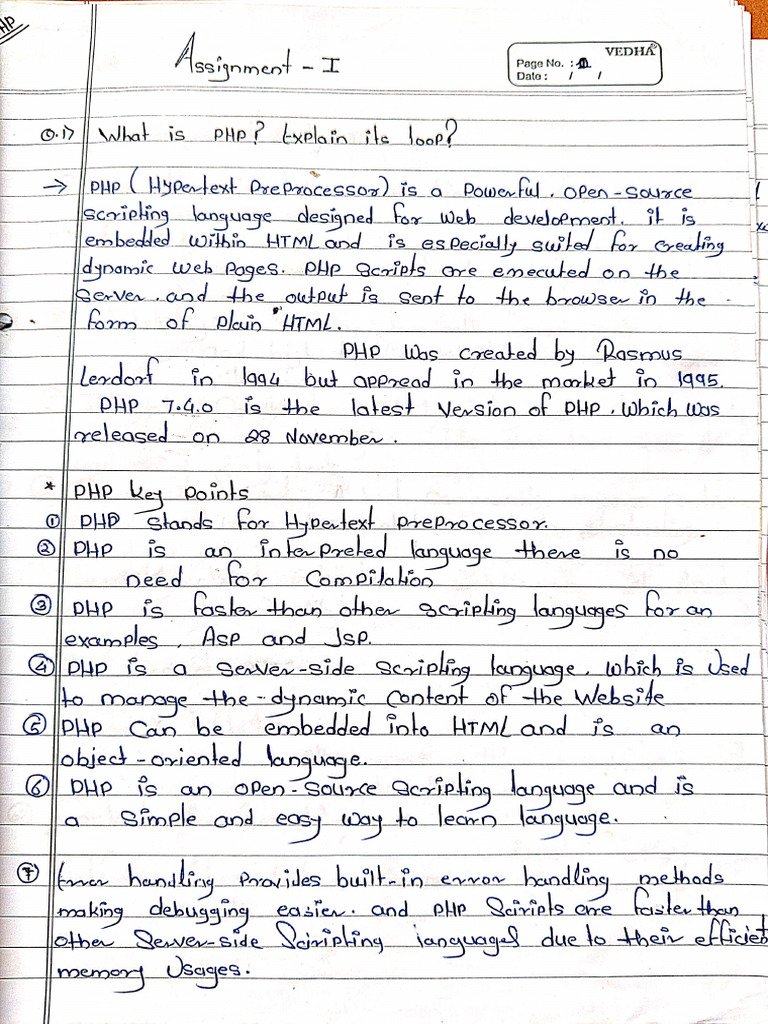 HP
Assignment - I
VEDHA
Page No. :
Date : / /
Q.1> What is PHP? Explain its loop?
→ PHP (Hypertext PreProcessor) is a Powerful. open-source
scripting language designed for web development. it is
embedded within HTML and is especially suited for creating
dynamic web Pages. PHP Scripts are executed on the
server. and the output is sent to the browser in the
form of Plain HTML.
PHP was created by Rasmus
Lerdorf in 1994 but appread in the market in 1995.
PHP 7.4.0 is the latest version of PHP. which was
released on 28 November.
* PHP key Points
① PHP stands for Hypertext PreProcessor.
② PHP is an interpreted language there is no
need for Compilation
③ PHP is faster than other scripting languages for an
examples, ASP and JSP.
④ PHP is a server-side scripting language. which is used
to manage the dynamic content of the Website
⑤ PHP Can be embedded into HTML and is an
object-oriented language.
⑥ PHP is an open-source scripting language and is
a simple and easy way to learn language.
⑦ Error handling Provides built-in error handling methods
making debugging easier. and PHP Sciripts are faster than
other Server-side Sciripting languages due to their efficient
memory Usages.